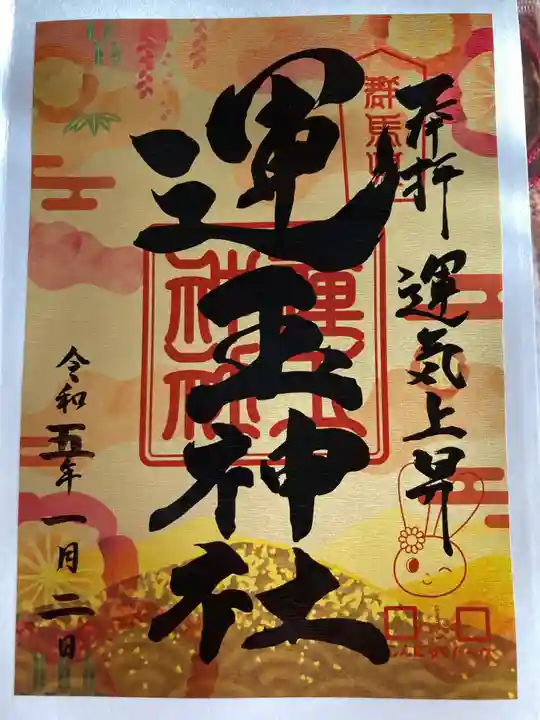 奉拝 運気上昇
群馬
運玉神社
令和五年一月二日